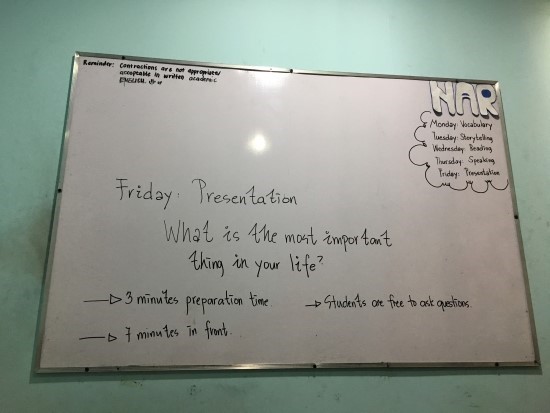 Reminder: Contractions are not appropriate/
acceptable in written academic
ENGLISH.
NAR
Monday: Vocabulary
Tuesday: Storytelling
Wednesday: Reading
Thursday: Speaking
Friday: Presentation
Friday: Presentation
What is the most important
thing in your life?
3 minutes preparation time.
Students are free to ask questions.
7 minutes in front.